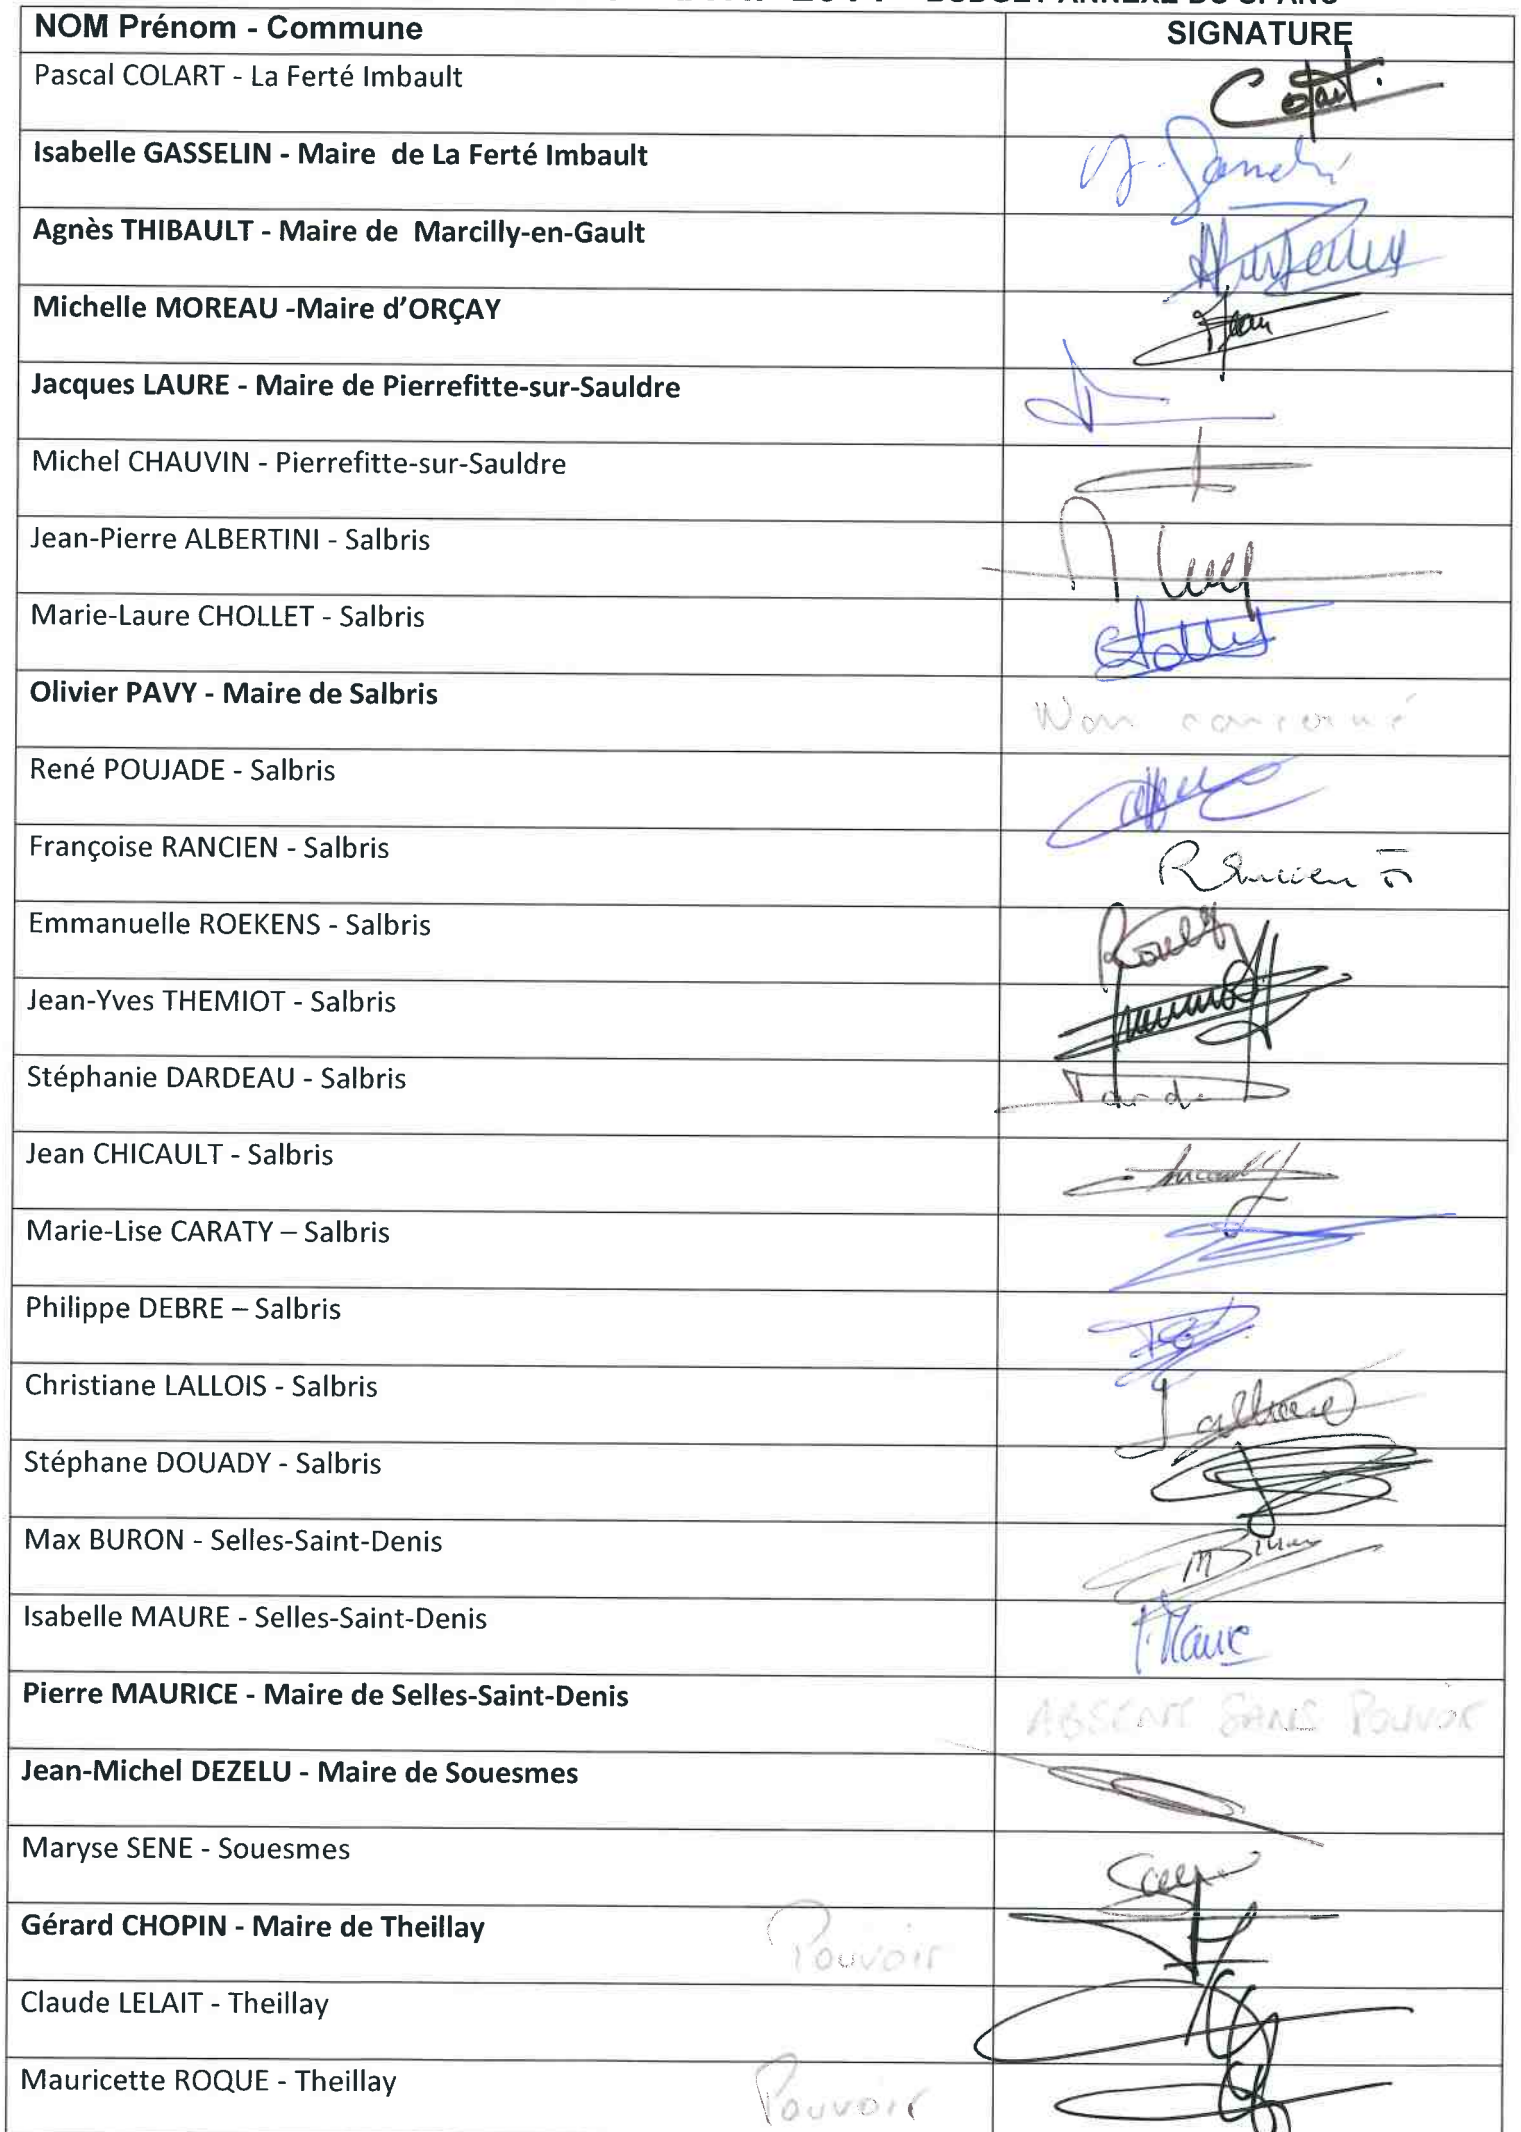 BUDGET ANNEXE DU SPANC
NOM Prénom - Commune SIGNATURE
Pascal COLART - La Ferté Imbault
Isabelle GASSELIN - Maire de La Ferté Imbault
Agnès THIBAULT - Maire de Marcilly-en-Gault
Michelle MOREAU -Maire d'ORÇAY
Jacques LAURE - Maire de Pierrefitte-sur-Sauldre
Michel CHAUVIN - Pierrefitte-sur-Sauldre
Jean-Pierre ALBERTINI - Salbris
Marie-Laure CHOLLET - Salbris
Olivier PAVY - Maire de Salbris Non concerné
René POUJADE - Salbris
Françoise RANCIEN - Salbris Rancien
Emmanuelle ROEKENS - Salbris
Jean-Yves THEMIOT - Salbris
Stéphanie DARDEAU - Salbris
Jean CHICAULT - Salbris
Marie-Lise CARATY – Salbris
Philippe DEBRE – Salbris
Christiane LALLOIS - Salbris
Stéphane DOUADY - Salbris
Max BURON - Selles-Saint-Denis
Isabelle MAURE - Selles-Saint-Denis I. Maure
Pierre MAURICE - Maire de Selles-Saint-Denis ABSENT SANS POUVOIR
Jean-Michel DEZELU - Maire de Souesmes
Maryse SENE - Souesmes
Gérard CHOPIN - Maire de Theillay Pouvoir
Claude LELAIT - Theillay
Mauricette ROQUE - Theillay Pouvoir